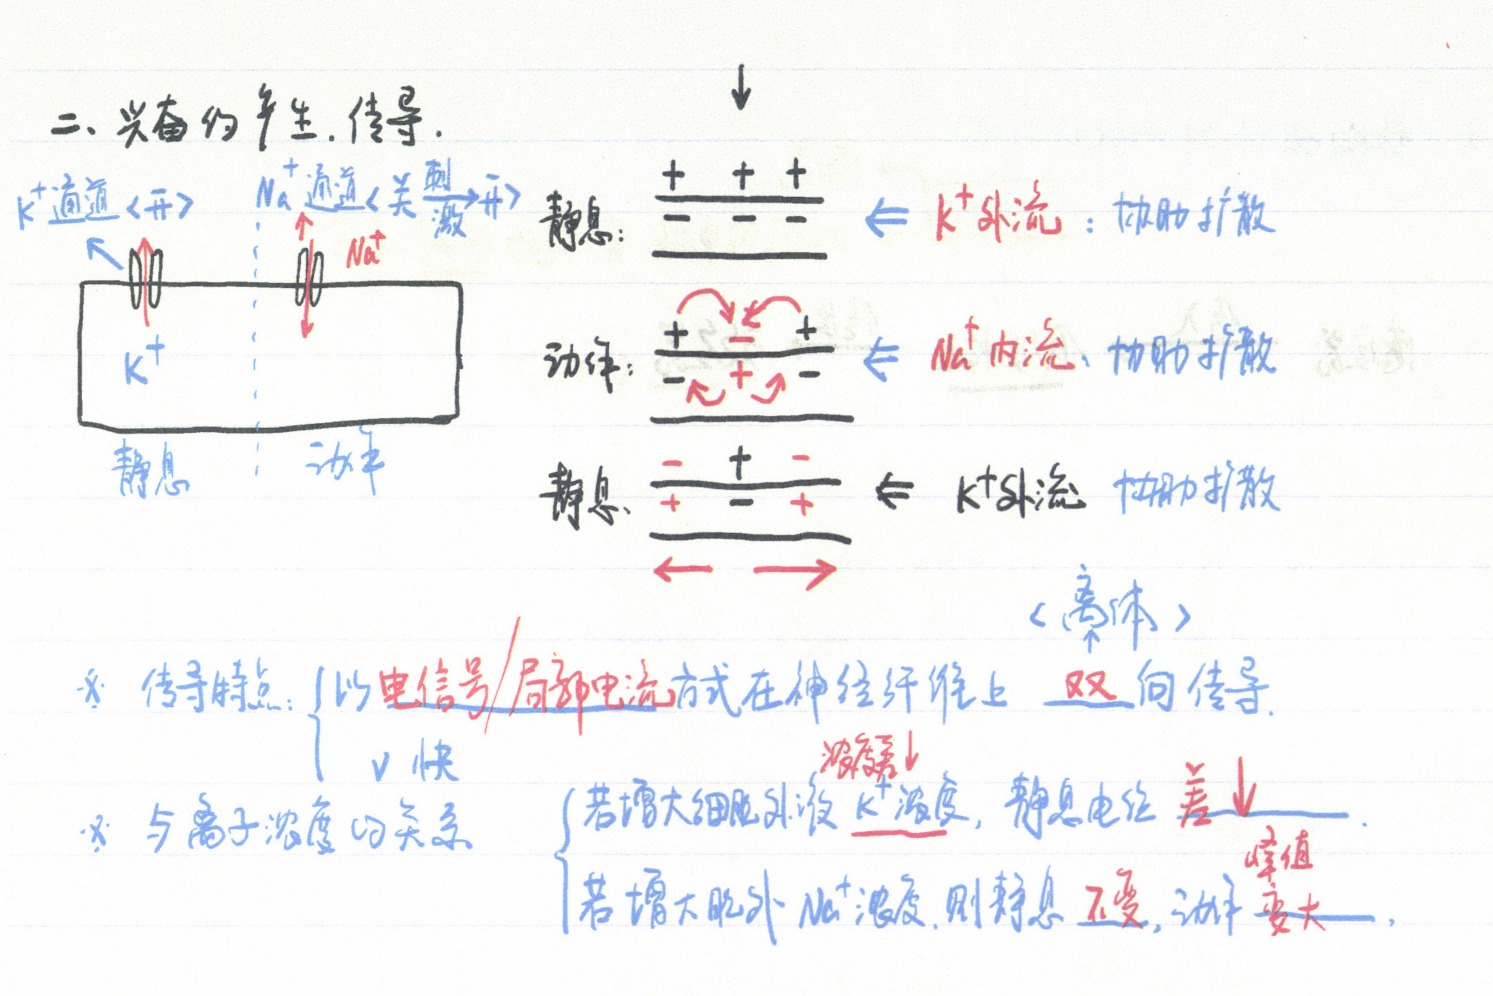 二、兴奋的产生.传导.
K⁺通道<开>
Na⁺通道<关 刺激→ 开>
Na⁺
K⁺
静息
动作
↓
+ + +
静息: - - - ⇐ K⁺外流: 协助扩散
+ - +
动作: - + - ⇐ Na⁺内流、协助扩散
- + -
静息、 + - + ⇐ K⁺外流 协助扩散
← →
<离体>
※ 传导特点: 以电信号/局部电流方式在神经纤维上 双向传导.
∨ 快
浓度差↓
※ 与离子浓度的关系 若增大细胞外液K⁺浓度, 静息电位 差↓.
峰值
若增大胞外Na⁺浓度.则静息 不变, 动作 变大.